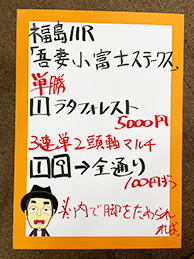 福島11R
「吾妻小富士ステークス」
単勝
1 ラタフォレスト
5000円
3連単2頭軸マルチ
→全通り
100円ずつ
内で脚をためられれば。